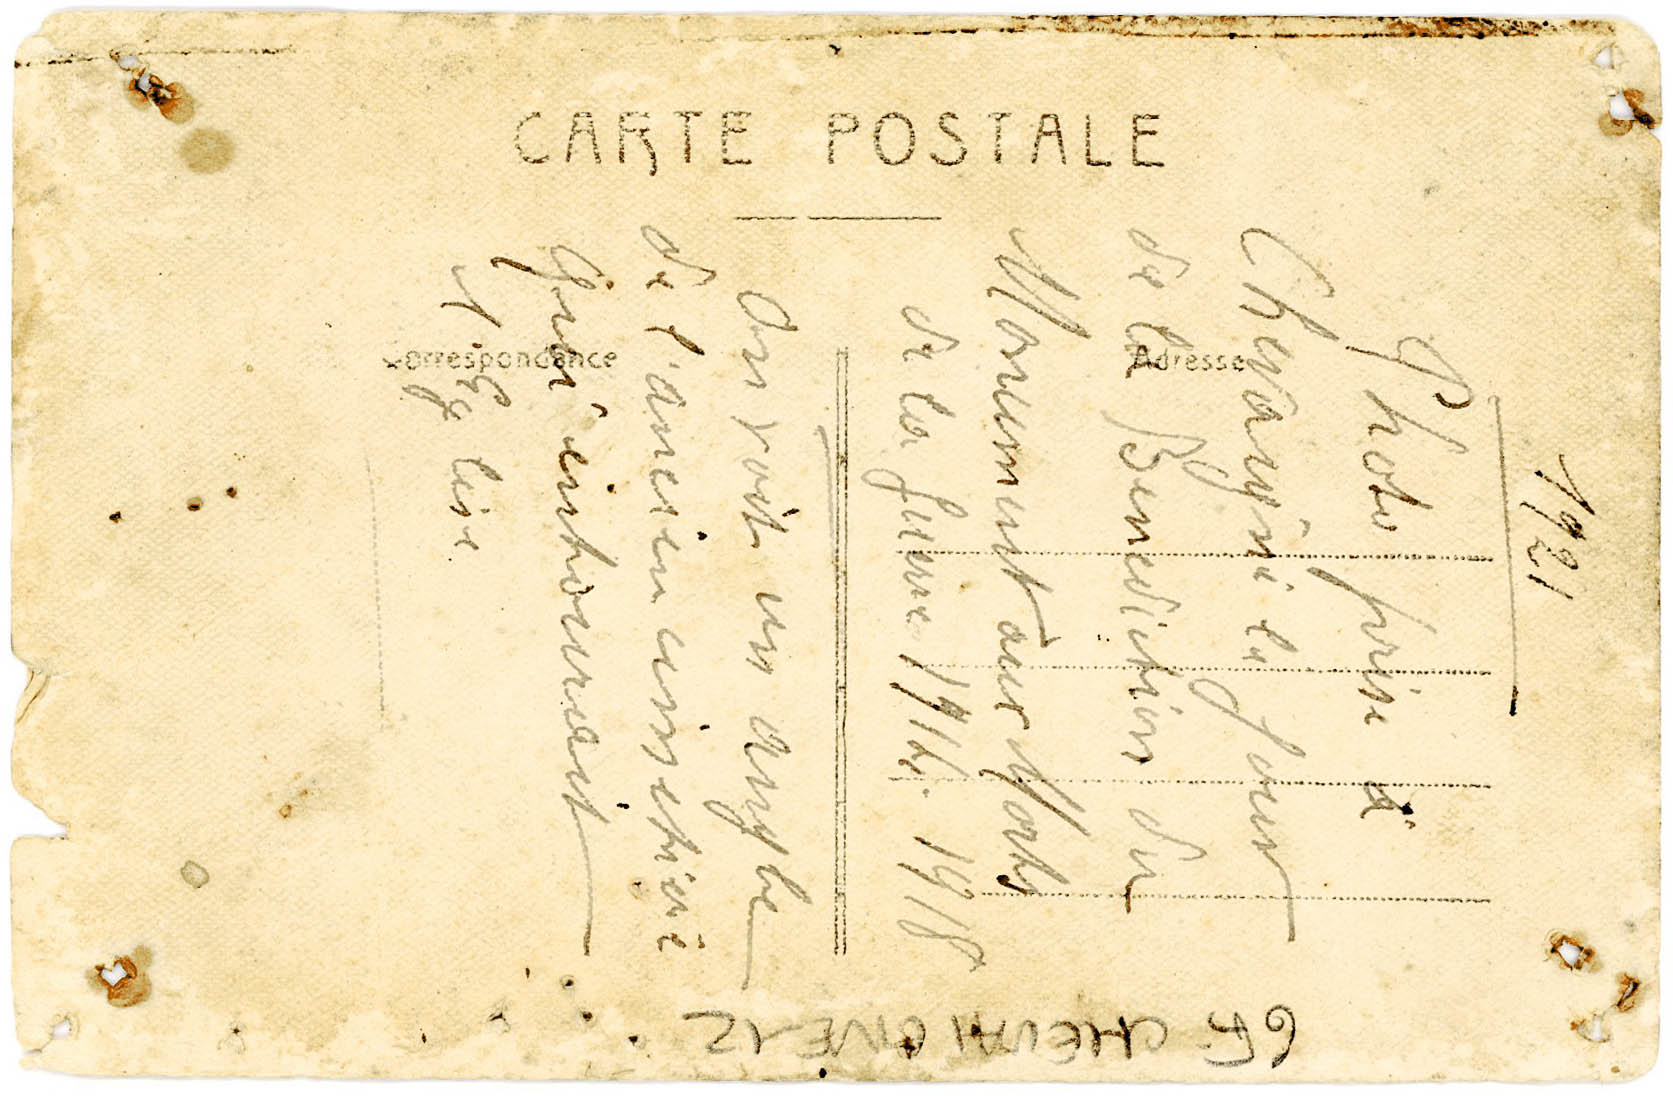 CARTE POSTALE
Correspondance
Adresse
1921
Photo prise à
Chevaigné le Jour
de la Benediction du
Monument aux Morts
de la Guerre 1914. 1918
On voit un angle
de l'ancien cimetière
qui entourait
l'Eglise
6F CHEVAIGNE 12